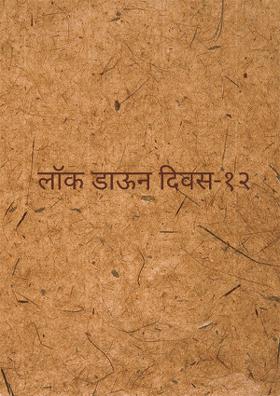 लॉक डाऊन दिवस-१२